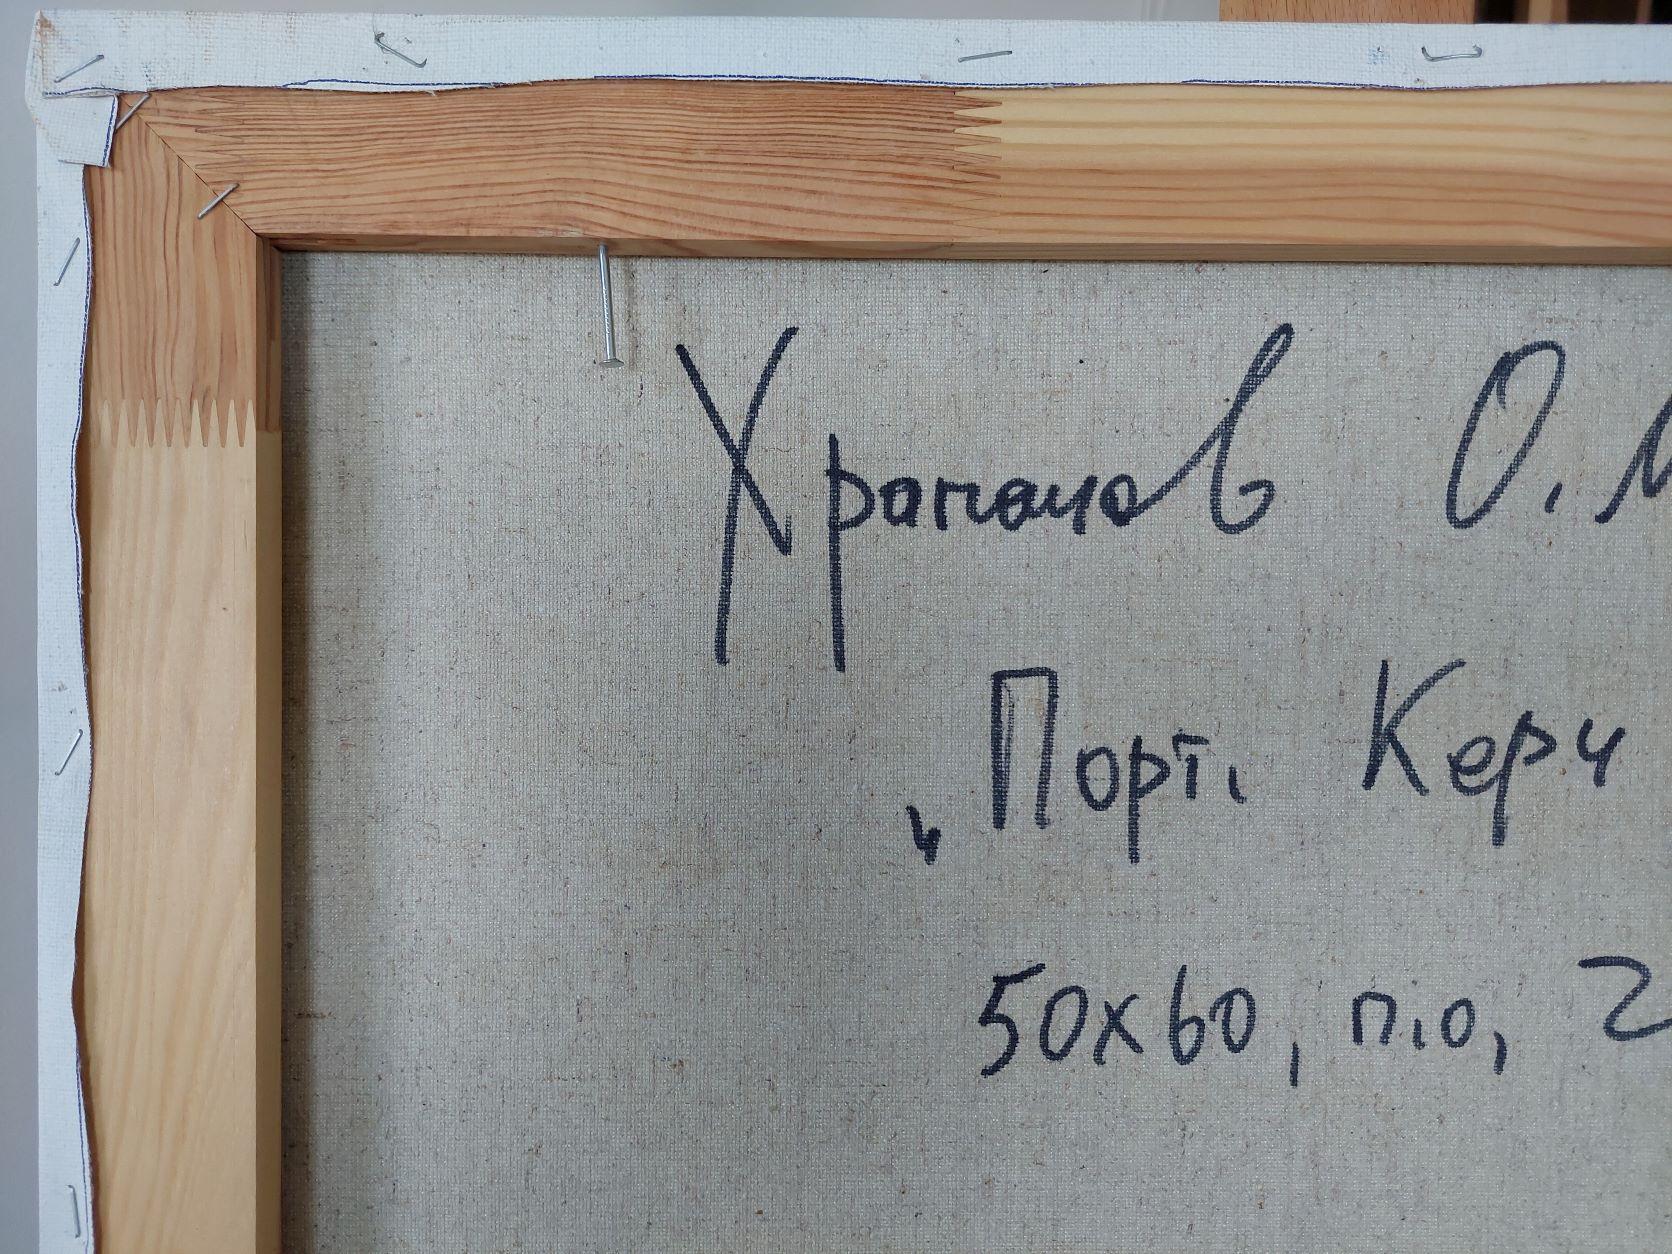 Храпачов О.М
„Порт. Керч
50х60, п.о, 2